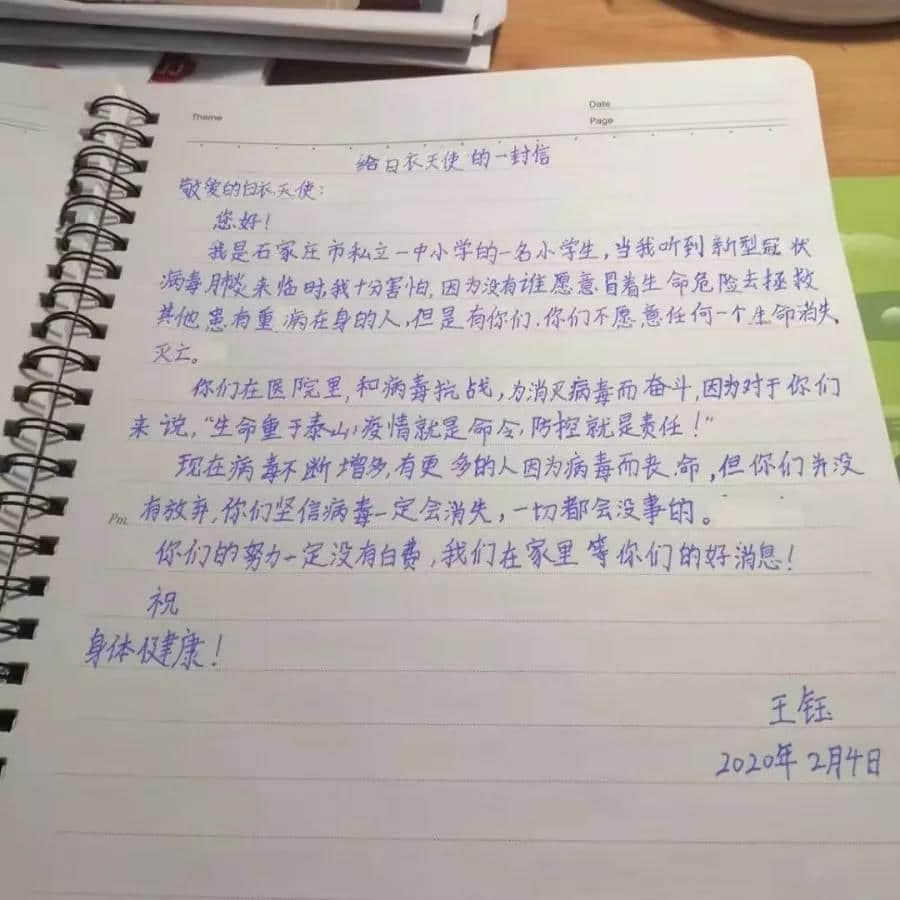 Theme
Date
Page
给白衣天使的一封信
敬爱的白衣天使:
您好!
我是石家庄市私立一中小学的一名小学生,当我听到新型冠状
病毒肺炎来临时,我十分害怕,因为没有谁愿意冒着生命危险去拯救
其他患有重病在身的人,但是有你们,你们不愿意任何一个生命消失
灭亡。
你们在医院里,和病毒抗战,为消灭病毒而奋斗,因为对于你们
来说,“生命重于泰山,疫情就是命令,防控就是责任!”
现在病毒不断增多,有更多的人因为病毒而丧命,但你们并没
有放弃,你们坚信病毒一定会消失,一切都会没事的。
Pm
你们的努力一定没有白费,我们在家里等你们的好消息!
祝
身体健康!
王钰
2020年2月4日